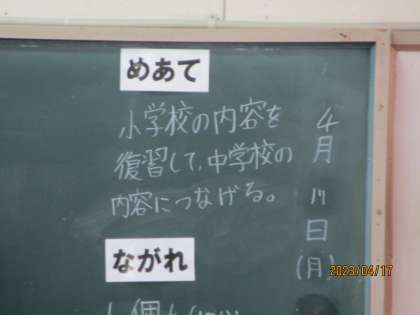 めあて
小学校の内容を
復習して、中学校の
内容につなげる。
4月17日(月)
ながれ
2023/04/17